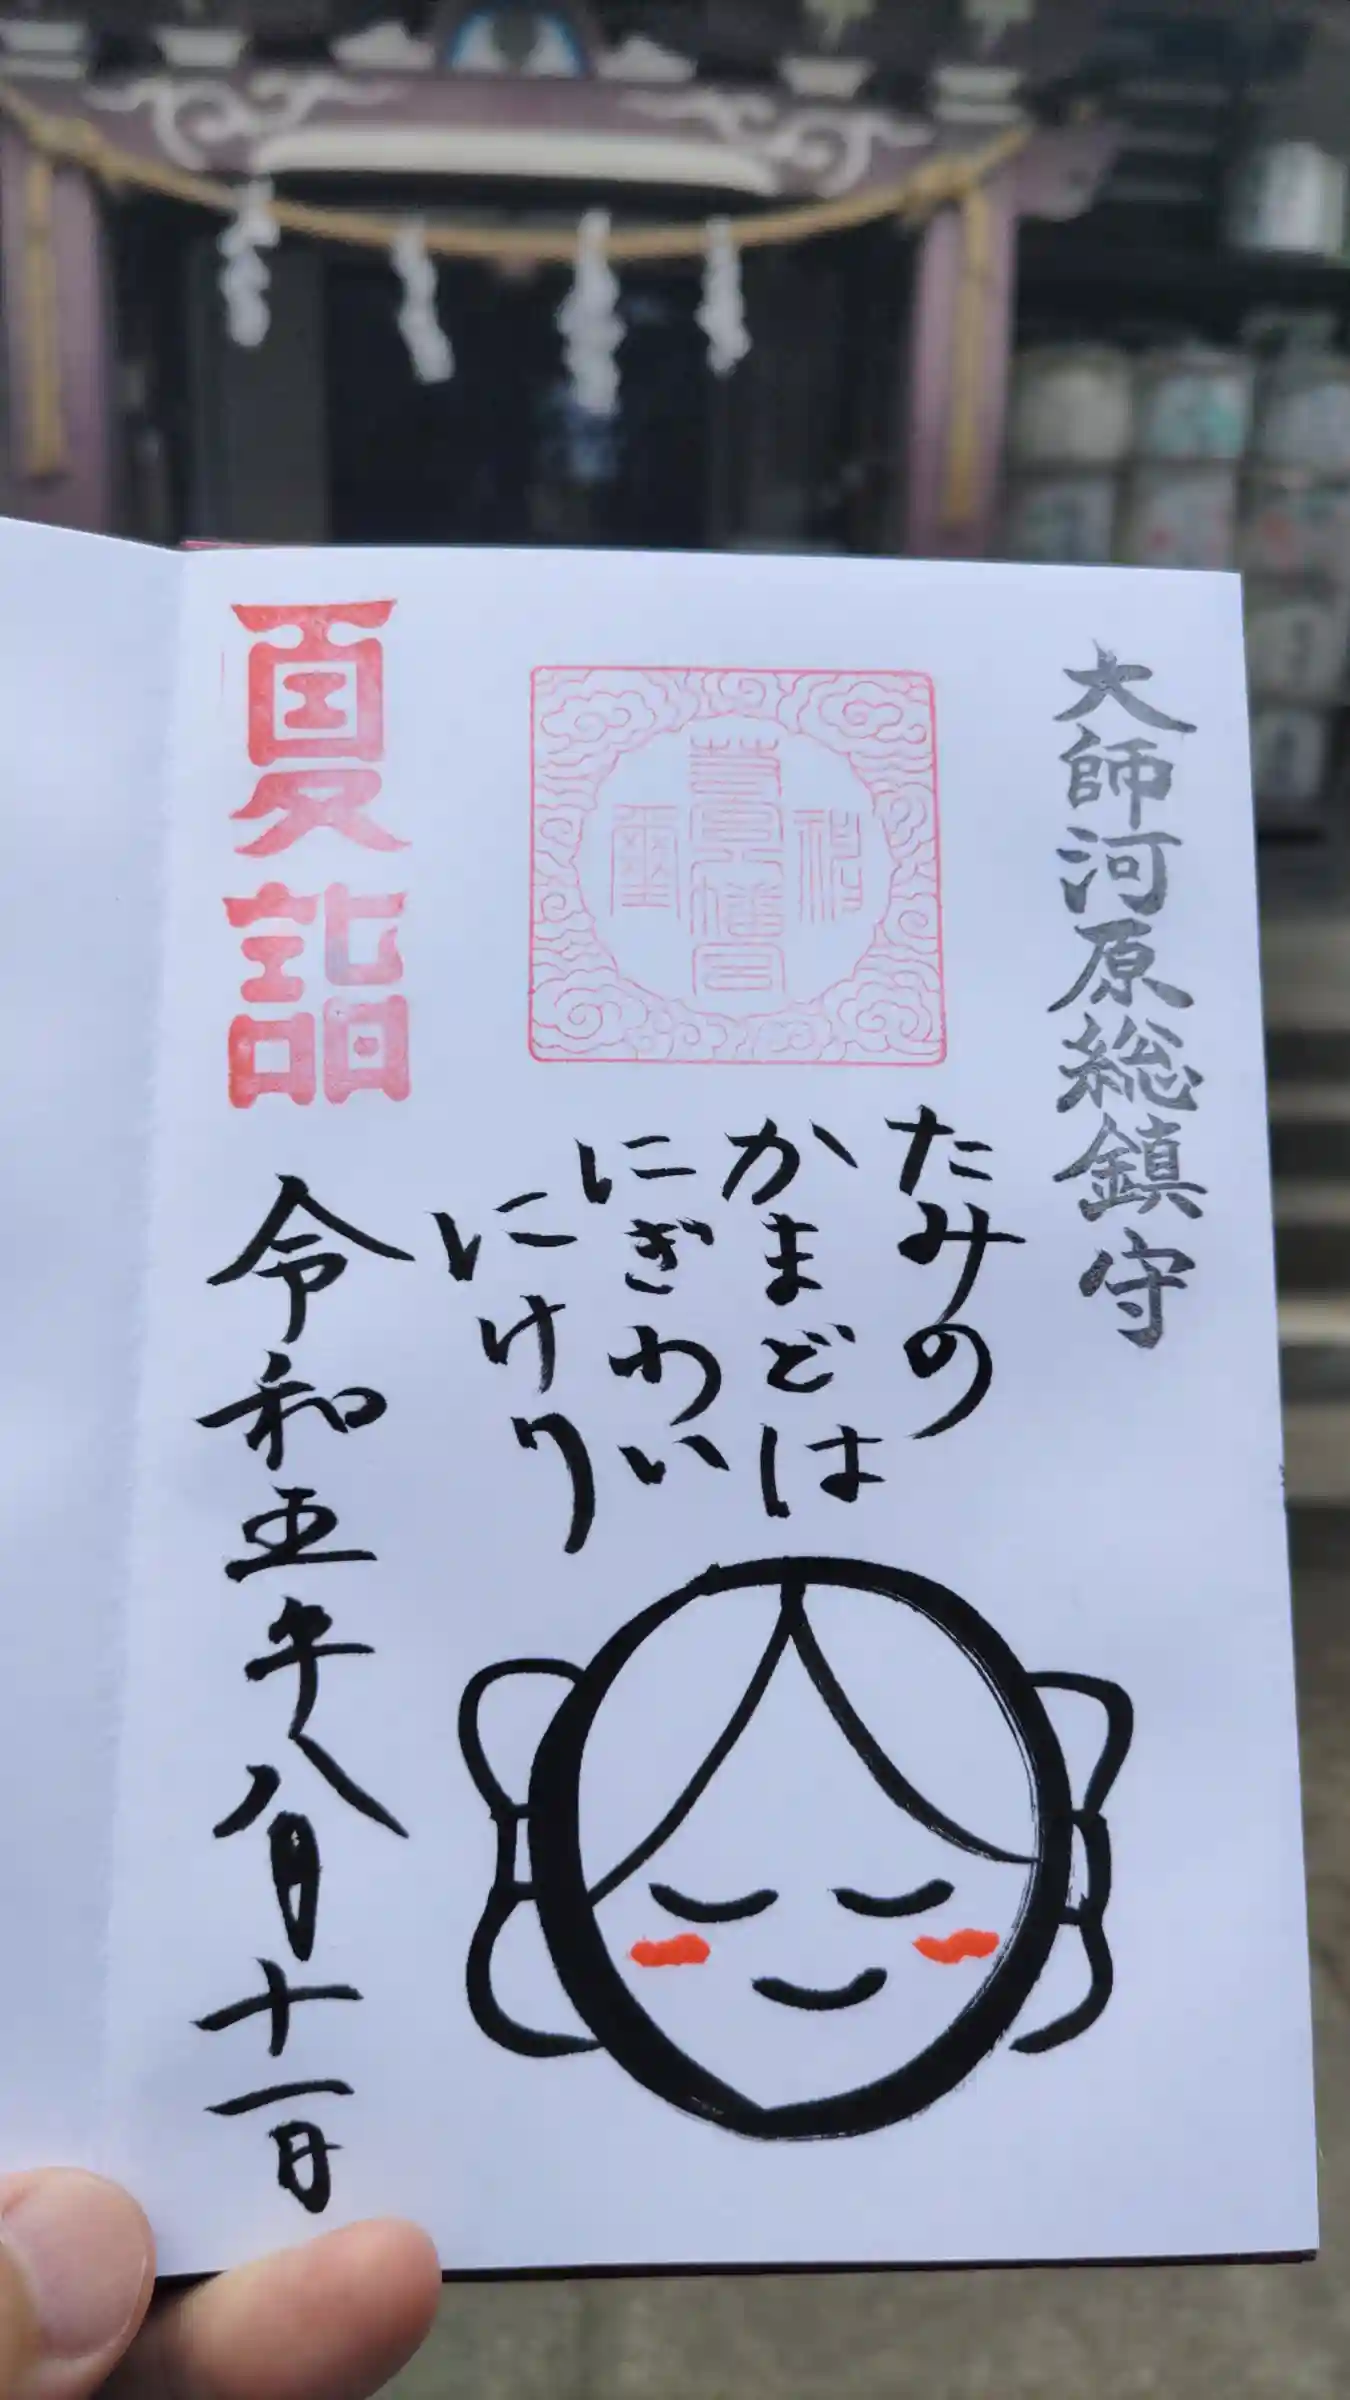 大師河原総鎮守
若宮八幡宮
たみの
かまどは
にぎわい
にけり
夏詣
令和五年八月十一日